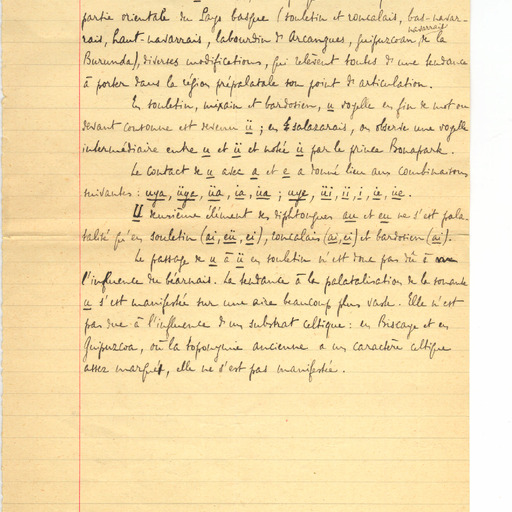 partie orientale du Pays basque (souletin et roncalais, bas-navar-
rais, haut-navarrais, labourdin d'Arcangues, guipuzcoan navarrais, de la
Burunda), diverses modifications, qui relèvent toutes d'une tendance
à porter dans la région prépalatale son point d'articulation.
En souletin, mixain et bardosien, u voyelle en fin de mot ou
devant consonne est devenu ü ; en salazarais, on observe une voyelle
intermédiaire entre u et ü et notée u̇ par le prince Bonaparte.
Le contact de u avec a et e a donné lieu aux combinaisons
suivantes : uya, üya, üa, ia, üa ; uye, üi, ii, i, ie, üe.
U deuxième élément des diphtongues au et eu ne s'est pala-
talisé qu'en souletin (ai, eü, ei), roncalais (ai, ei) et bardosien (ai).
Le passage de u à ü en souletin n'est donc pas dû à
l'influence du béarnais. La tendance à la palatalisation de la sonante
u s'est manifestée sur une aire beaucoup plus vaste. Elle n'est
pas due à l'influence d'un substrat celtique : en Biscaye et en
Guipuzcoa, où la toponymie ancienne a un caractère celtique
assez marqué, elle ne s'est pas manifestée.